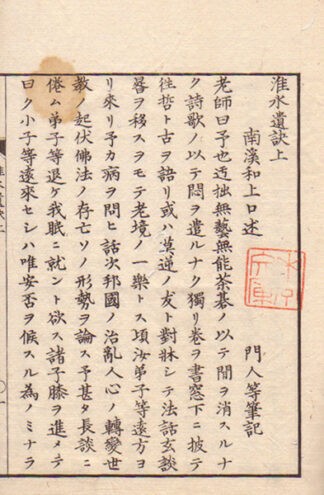 淮水遺訣上
南渓和上口述
門人等筆記
老師曰予也迃拙無藝無能茶碁ノ以テ間ヲ消スルナ
ク詩歌ノ以テ悶ヲ遣ルナク獨リ巻ヲ書窓下ニ披テ
徃哲ト古ヲ語リ或ハ莫逆ノ友ト對牀シテ法話玄談
晷ヲ移スヲモテ老境ノ一樂トス頃汝弟子等遠方ヨ
リ來リ予カ病ヲ問ヒ話次邦國治亂人心ノ轉變世
教ノ起伏佛法ノ存亡ソノ形勢ヲ論ス予甚タ長談ニ
倦ム弟子等退ケ我眠ニ就ント欲ス諸子膝ヲ進メテ
曰ク小子等遠來セシハ唯安否ヲ候スル為ノミナラ
淮水遺訣上